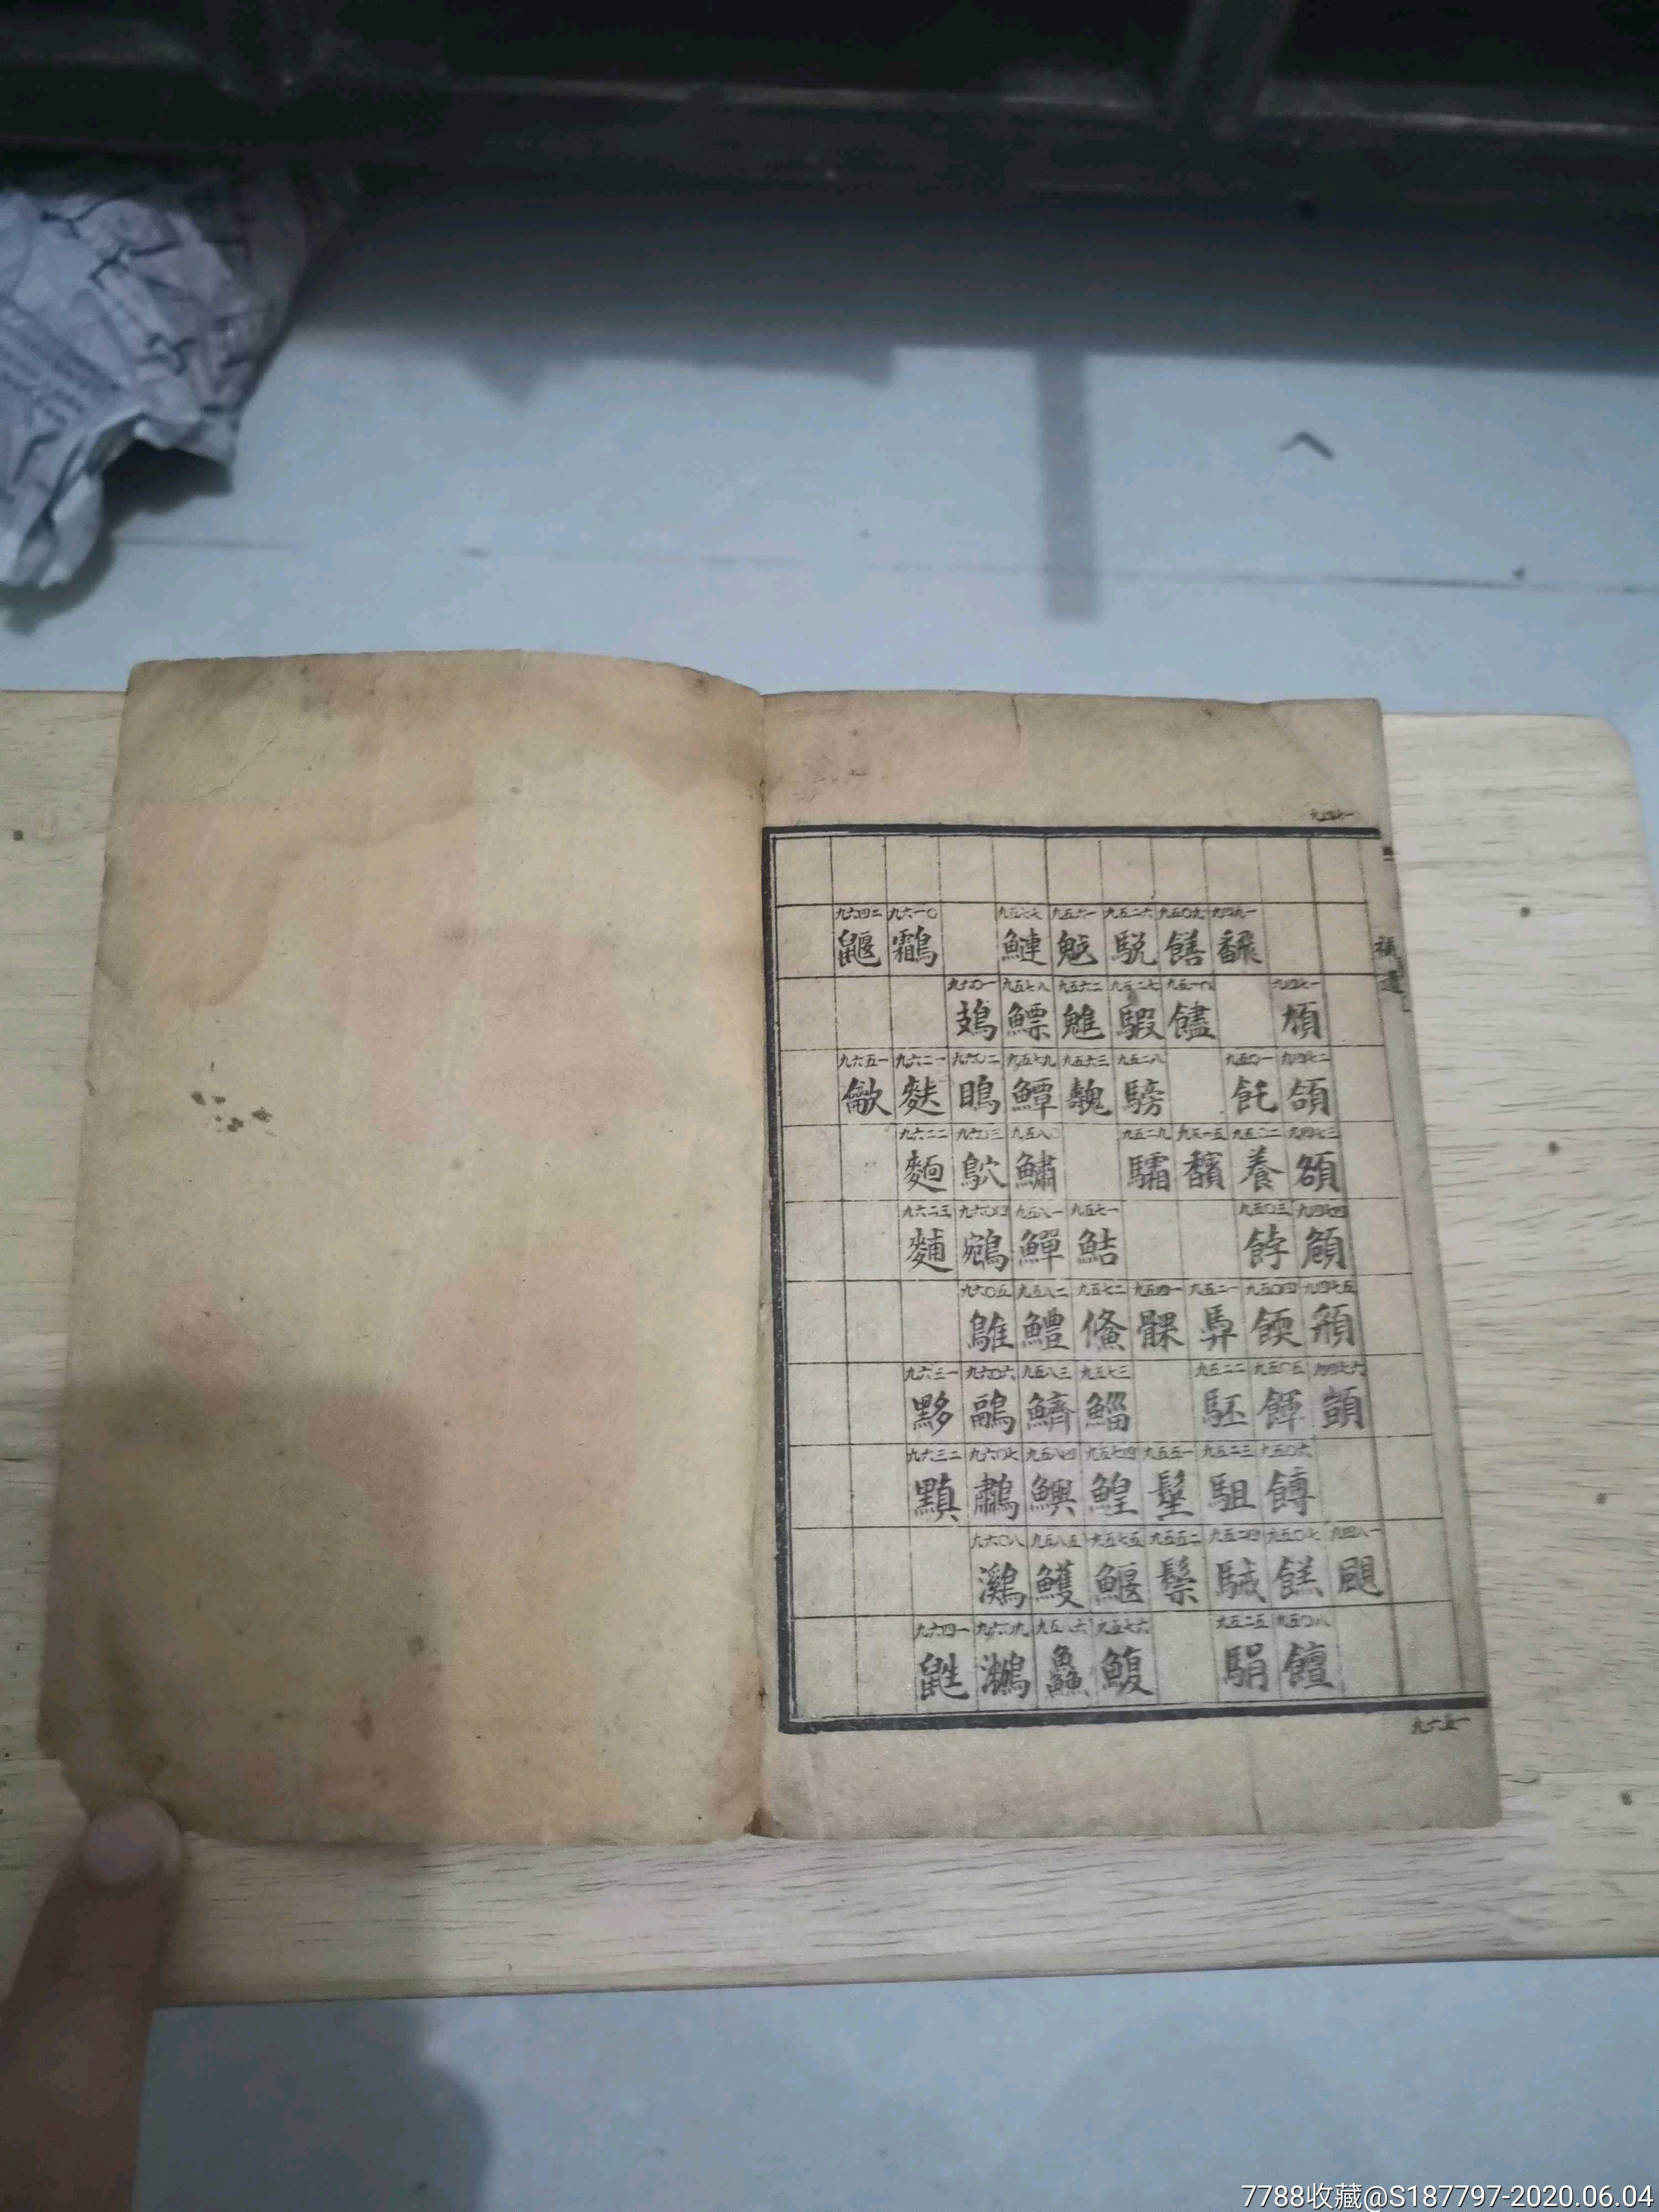 九四七一
補遺
九四七一
九四七二 頜
九四七三 頟
九四七四 頠
九四七五 頮
九四七六 顗
九四八一
九四九一 飜
九五〇一 飥
九五〇二 養
九五〇三 餑
九五〇四 餪
九五〇五 餫
九五〇六 餺
九五〇七 餻
九五〇八 饘
九五〇九 饍
九五一〇
九五一五 馪
九五二一 馵
九五二二 駓
九五二三 駔
九五二四 駴
九五二五 駽
九五二六 駾
九五二七 騢
九五二八 騯
九五二九
九五四一 髁
九五五一 髽
九五五二 鬃
九五六一 魆
九五六二 魋
九五六三 魗
九五七一 鮚
九五七二 鯈
九五七三 鯔
九五七四 鰉
九五七五 鰋
九五七六 鰒
九五七七 鰱
九五七八 鰾
九五七九 鱏
九五八〇 鱐
九五八一 鱓
九五八二 鱧
九五八三 鱭
九五八四 鱮
九五八五 鱯
九五八六 鱻
九六〇一 鳷
九六〇二 鴡
九六〇三 鴥
九六〇四 鵷
九六〇五 鵻
九六〇六 鷊
九六〇七 鷫
九六〇八 鸂
九六〇九
九六一〇 鸘
九六二一 麩
九六二二
九六二三
九六三一 黟
九六三二 黰
九六四一 鼪
九六四二 鼴
九六五一 龡
九六五一
7788收藏@S187797-2020.06.04